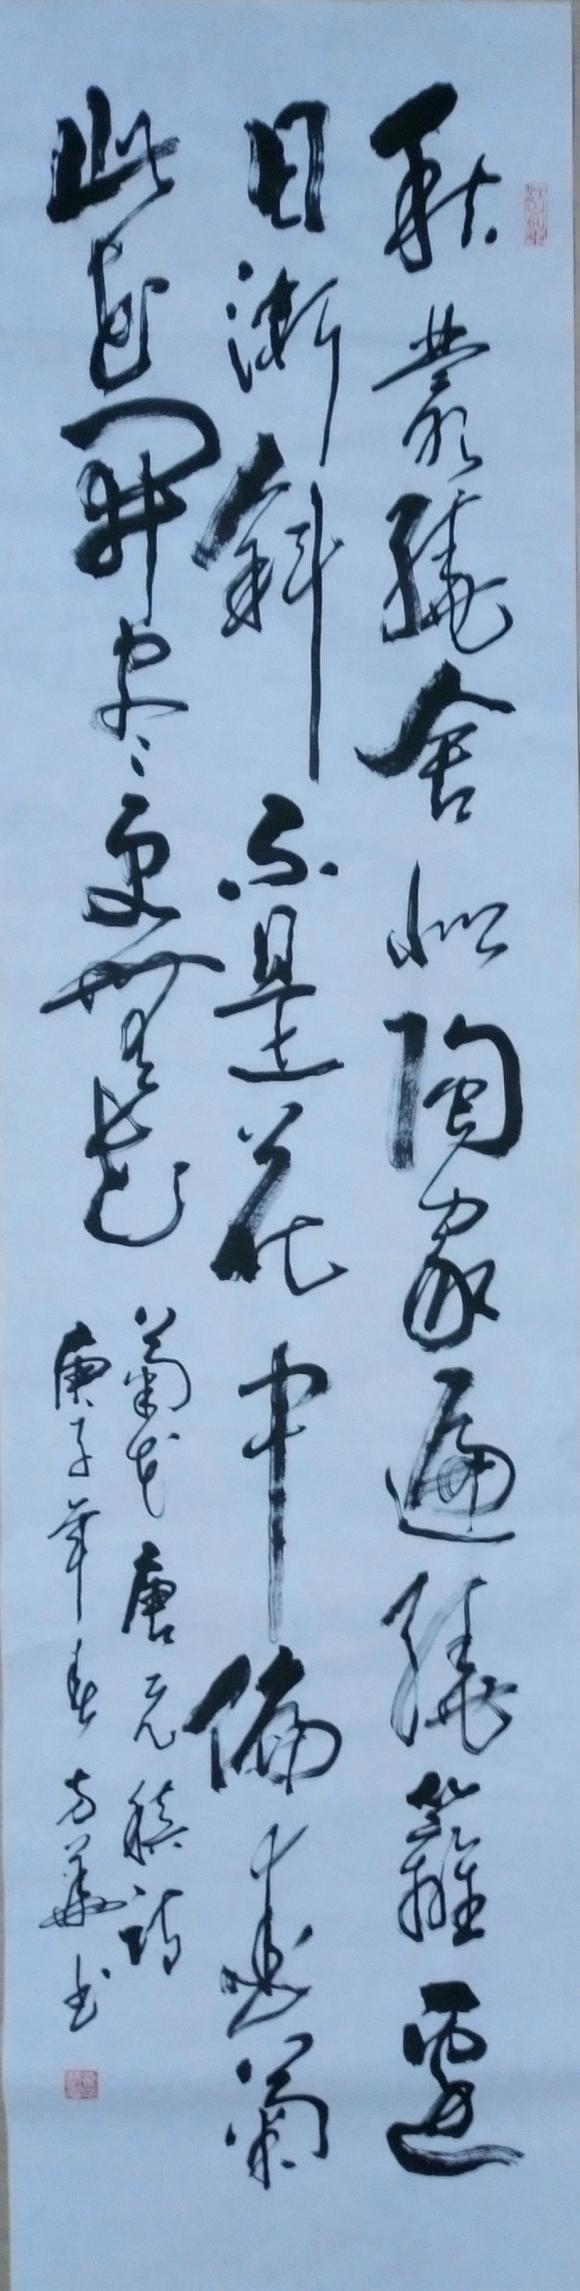 秋叢繞舍似陶家遍繞籬邊
日漸斜不是花中偏愛菊
此花開盡更無花
菊花唐元稹詩
庚子年春方華書